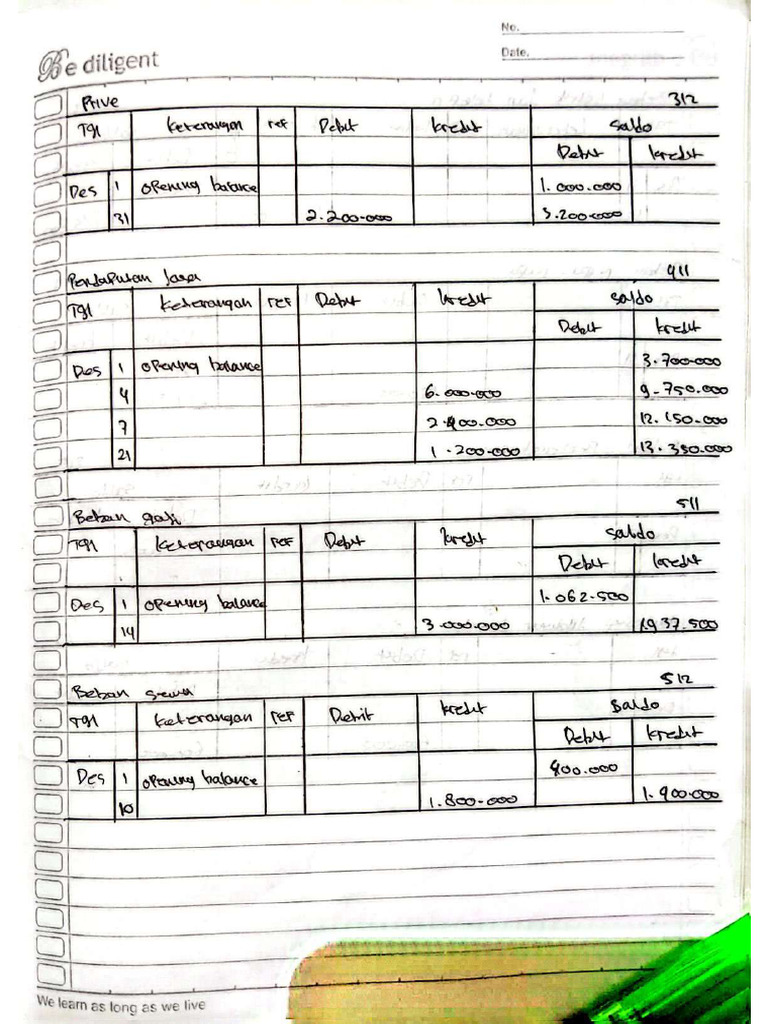 No.
Be diligent
Date.
Prive 312
Tgl Keterangan ref Debit kredit saldo
Debit kredit
Des 1 opening balance 1.000.000
31 2.200.000 3.200.000
Pendapatan Jasa 411
Tgl Keterangan ref Debit kredit saldo
Debit kredit
Des 1 opening balance 3.700.000
4 6.000.000 9.750.000
7 2.400.000 12.150.000
21 1.200.000 13.350.000
Beban gaji 511
Tgl Keterangan ref Debit kredit saldo
Debit kredit
Des 1 opening balance 1.062.500
14 3.000.000 1.937.500
Beban sewa 512
Tgl Keterangan ref Debit kredit Saldo
Debit kredit
Des 1 opening balance
10 1.800.000
We learn as long as we live